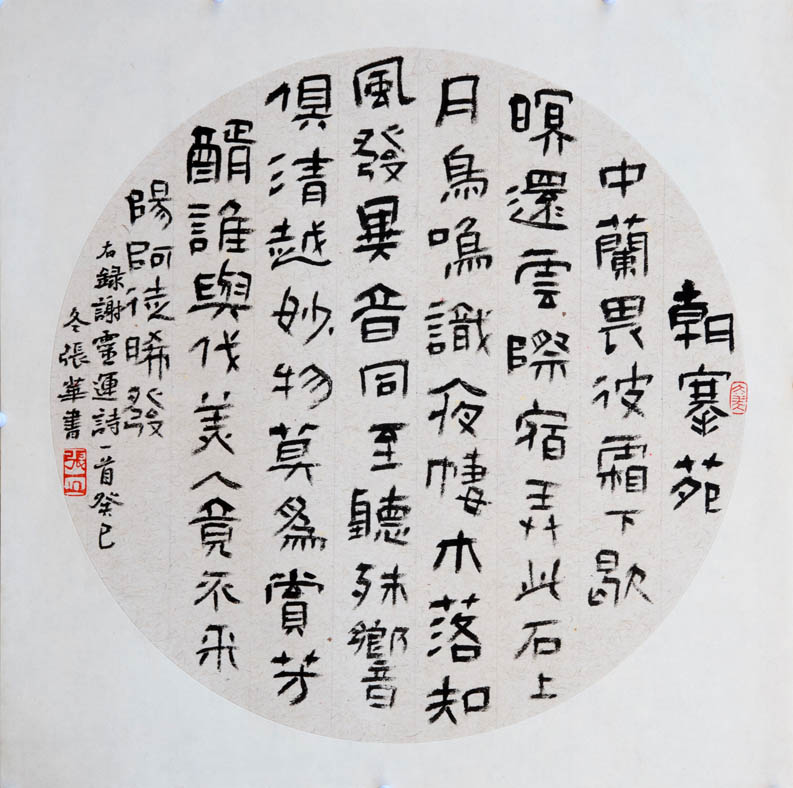 朝搴苑
中蘭畏彼霜下歇
暝還雲際宿弄此石上
月鳥鳴識夜棲木落知
風發異音同至聽殊響
俱清越妙物莫爲賞芳
醑誰與伐美人竟不來
陽阿徒晞發
右錄謝靈運詩一首癸巳
冬張華書